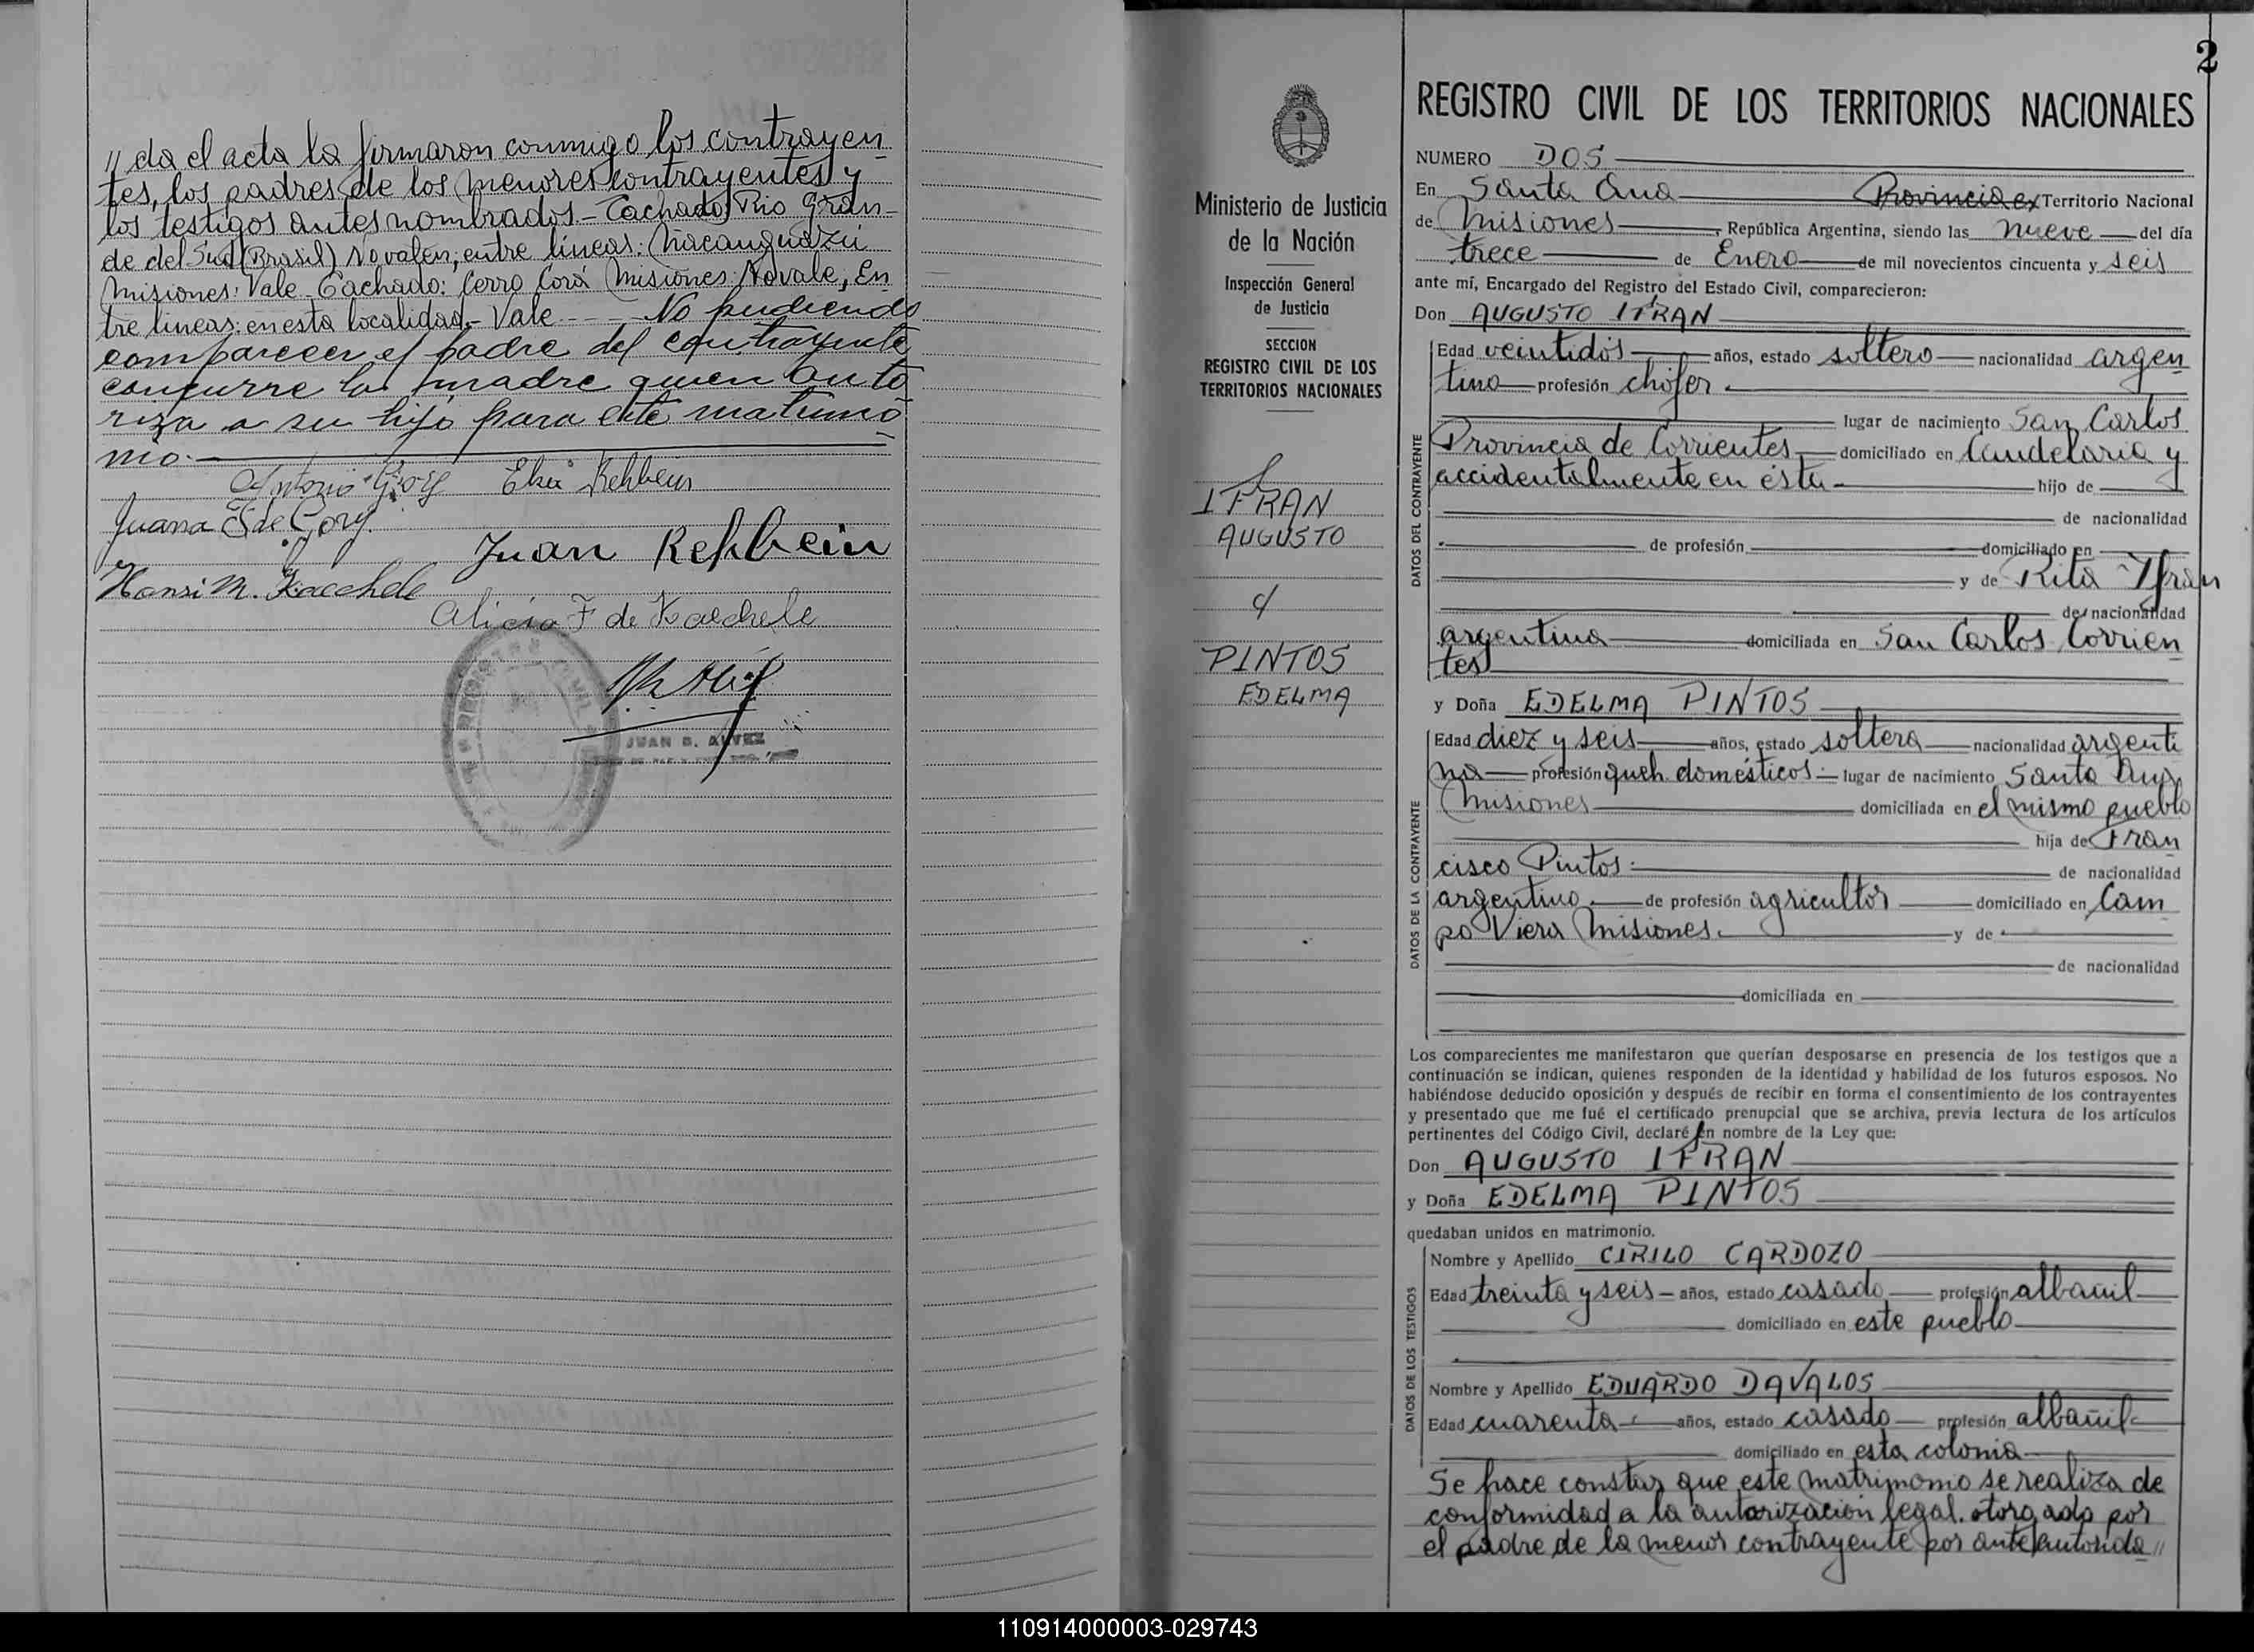 // da el acta la firmaron conmigo los contrayen
tes, los padres de los menores contrayentes y
los testigos antes nombrados - Tachado: Rio Gran-
de del Sud (Brasil) No valen; entre líneas: Ñacanguazú
Misiones: Vale - Tachado: Cerro Corá Misiones: No vale, En
tre líneas: en esta localidad.- Vale ---- No pudiendo
comparecer el padre del contrayente
concurre la madre quien auto
riza a su hijo para este matrimo
nio.-
Antonio Gory Elsa Rehbein
Juana E. de Gory.
Juan Rehbein
Hansi M. Kaechele
Alicia F de Kaechele
JUAN B. ALVEZ
2
REGISTRO CIVIL DE LOS TERRITORIOS NACIONALES
Ministerio de Justicia
de la Nación
Inspección General
de Justicia
SECCION
REGISTRO CIVIL DE LOS
TERRITORIOS NACIONALES
IFRAN
AUGUSTO
c/
PINTOS
EDELMA
NUMERO DOS
En Santa Ana Provincia ex Territorio Nacional
de Misiones, República Argentina, siendo las nueve del día
trece de Enero de mil novecientos cincuenta y seis
ante mí, Encargado del Registro del Estado Civil, comparecieron:
Don AUGUSTO IFRAN
DATOS DEL CONTRAYENTE
Edad veintidós años, estado soltero nacionalidad argen
tino profesión chófer.
lugar de nacimiento San Carlos
Provincia de Corrientes domiciliado en Candelaria y
accidentalmente en ésta hijo de
de nacionalidad
de profesión domiciliado en
y de Rita Ifrán
de nacionalidad
argentina domiciliada en San Carlos Corrien
tes
y Doña EDELMA PINTOS
DATOS DE LA CONTRAYENTE
Edad diez y seis años, estado soltera nacionalidad argenti
na profesión queh. domésticos lugar de nacimiento Santa Ana
Misiones domiciliada en el mismo pueblo
hija de Fran
cisco Pintos. de nacionalidad
argentino. de profesión agricultor domiciliado en Cam
po Viera Misiones. y de
de nacionalidad
domiciliada en
Los comparecientes me manifestaron que querían desposarse en presencia de los testigos que a
continuación se indican, quienes responden de la identidad y habilidad de los futuros esposos. No
habiéndose deducido oposición y después de recibir en forma el consentimiento de los contrayentes
y presentado que me fué el certificado prenupcial que se archiva, previa lectura de los artículos
pertinentes del Código Civil, declaré en nombre de la Ley que:
Don AUGUSTO IFRAN
y Doña EDELMA PINTOS
quedaban unidos en matrimonio.
DATOS DE LOS TESTIGOS
Nombre y Apellido CIRILO CARDOZO
Edad treinta y seis años, estado casado profesión albañil
domiciliado en este pueblo
Nombre y Apellido EDUARDO DAVALOS
Edad cuarenta años, estado casado profesión albañil
domiciliado en esta colonia
Se hace constar que este matrimonio se realiza de
conformidad a la autorización legal. otorgado por
el padre de la menor contrayente por ante autorida //
110914000003-029743